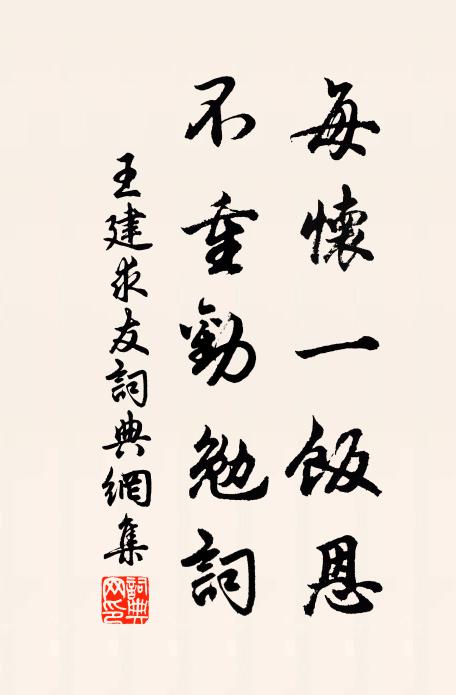 每懷一飯恩
不重勸勉詞
王建求友詞典網集
詞典網印